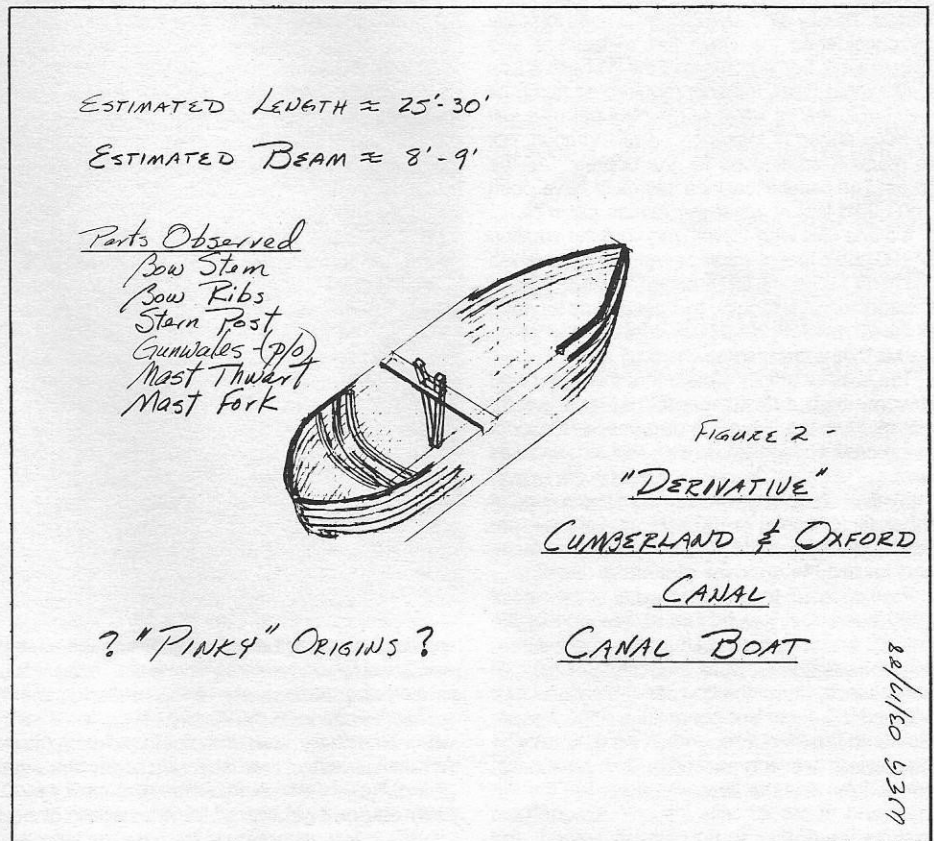 ESTIMATED LENGTH ≈ 25'-30'
ESTIMATED BEAM ≈ 8'-9'
Parts Observed
Bow Stem
Bow Ribs
Stern Post
Gunwales-(p/o)
Mast Thwart
Mast Fork
FIGURE 2 -
"DERIVATIVE"
CUMBERLAND & OXFORD
CANAL
CANAL BOAT
? "PINKY" ORIGINS ?